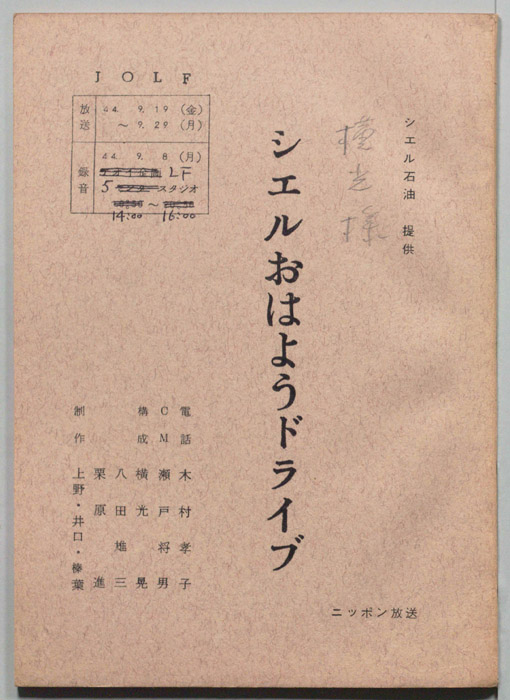 JOLF
放送 44. 9. 19 (金)
〜 9. 29 (月)
録音 44. 9. 8 (月)
LF
5 スタジオ
〜
14:00 16:00
シエル石油 提供
横光様
シエルおはようドライブ
電話 木村孝子
CM 瀬戸将男
構成 横光晃
八田雄三
栗原進
制作 上野・井口・榛葉
ニッポン放送